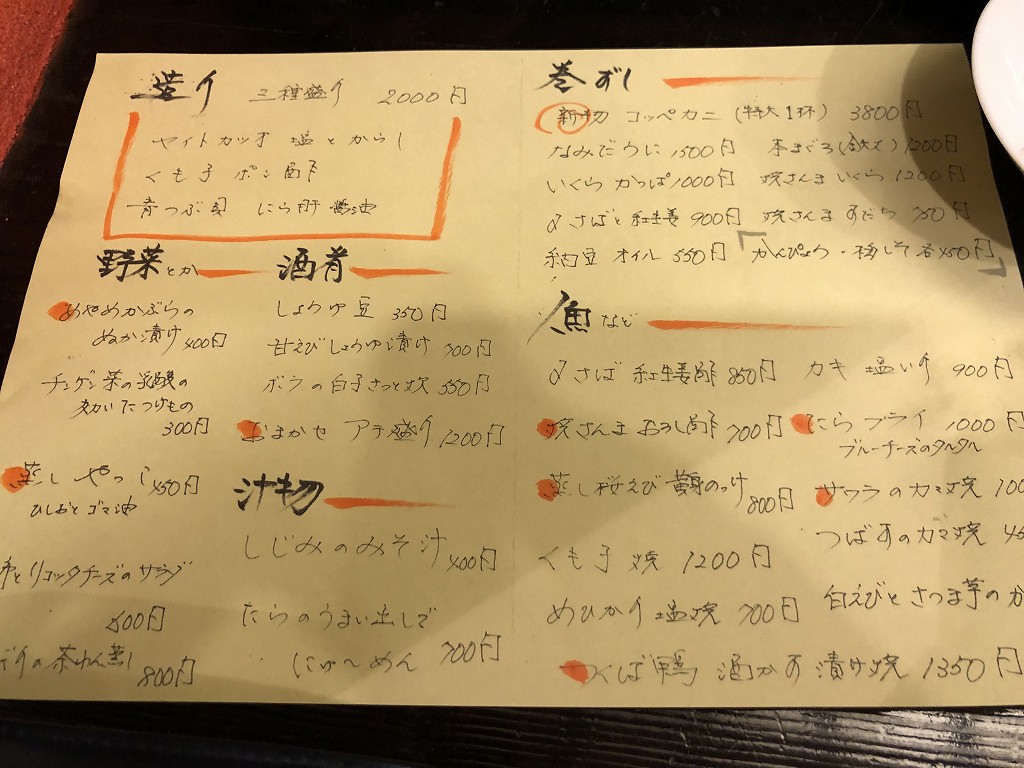 造り 三種盛り 2000円
ヤイトカツオ 塩とからし
くも子 ポン酢
青つぶ貝 にら肝醤油
野菜とか
あやめかぶらの
ぬか漬け 400円
チンゲン菜の乳酸の
効いたつけもの
300円
蒸しやっこ 450円
ひしおとゴマ油
とリコッタチーズのサラダ
600円
の茶わん蒸し
800円
酒肴
しょうゆ豆 350円
甘えびしょうゆ漬け 700円
ボラの白子さっと炊 550円
おまかせ アテ盛り 1200円
汁物
しじみのみそ汁 400円
たらのうまい出しで
にゅ〜めん 700円
巻ずし
コッペカニ (特大1杯) 3800円
なみだうに 1500円 本まぐろ 1200円
いくら かっぱ 1000円 焼さんま いくら 1200円
〆さばと紅生姜 900円 焼さんま すだち 750円
納豆 オイル 550円 「かんぴょう・梅しそ 各450円」
魚など
〆さば 紅生姜酢 850円 カキ 塩いり 900円
焼さんま おろし酢 700円 にら フライ 1000円
ブルーチーズのタルタル
蒸し桜えび 黄身のっけ 800円 サワラのカマ焼
くも子 焼 1200円 つばすのカマ焼
めひかり 塩焼 700円 白えびとさつま芋のか
つくば鴨 酒かす漬け焼 1350円